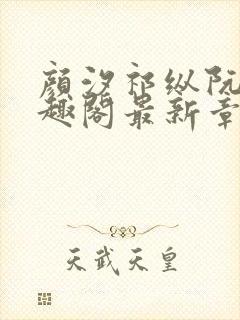 顔汐祁纵阮
趣阁最新章
天武天皇